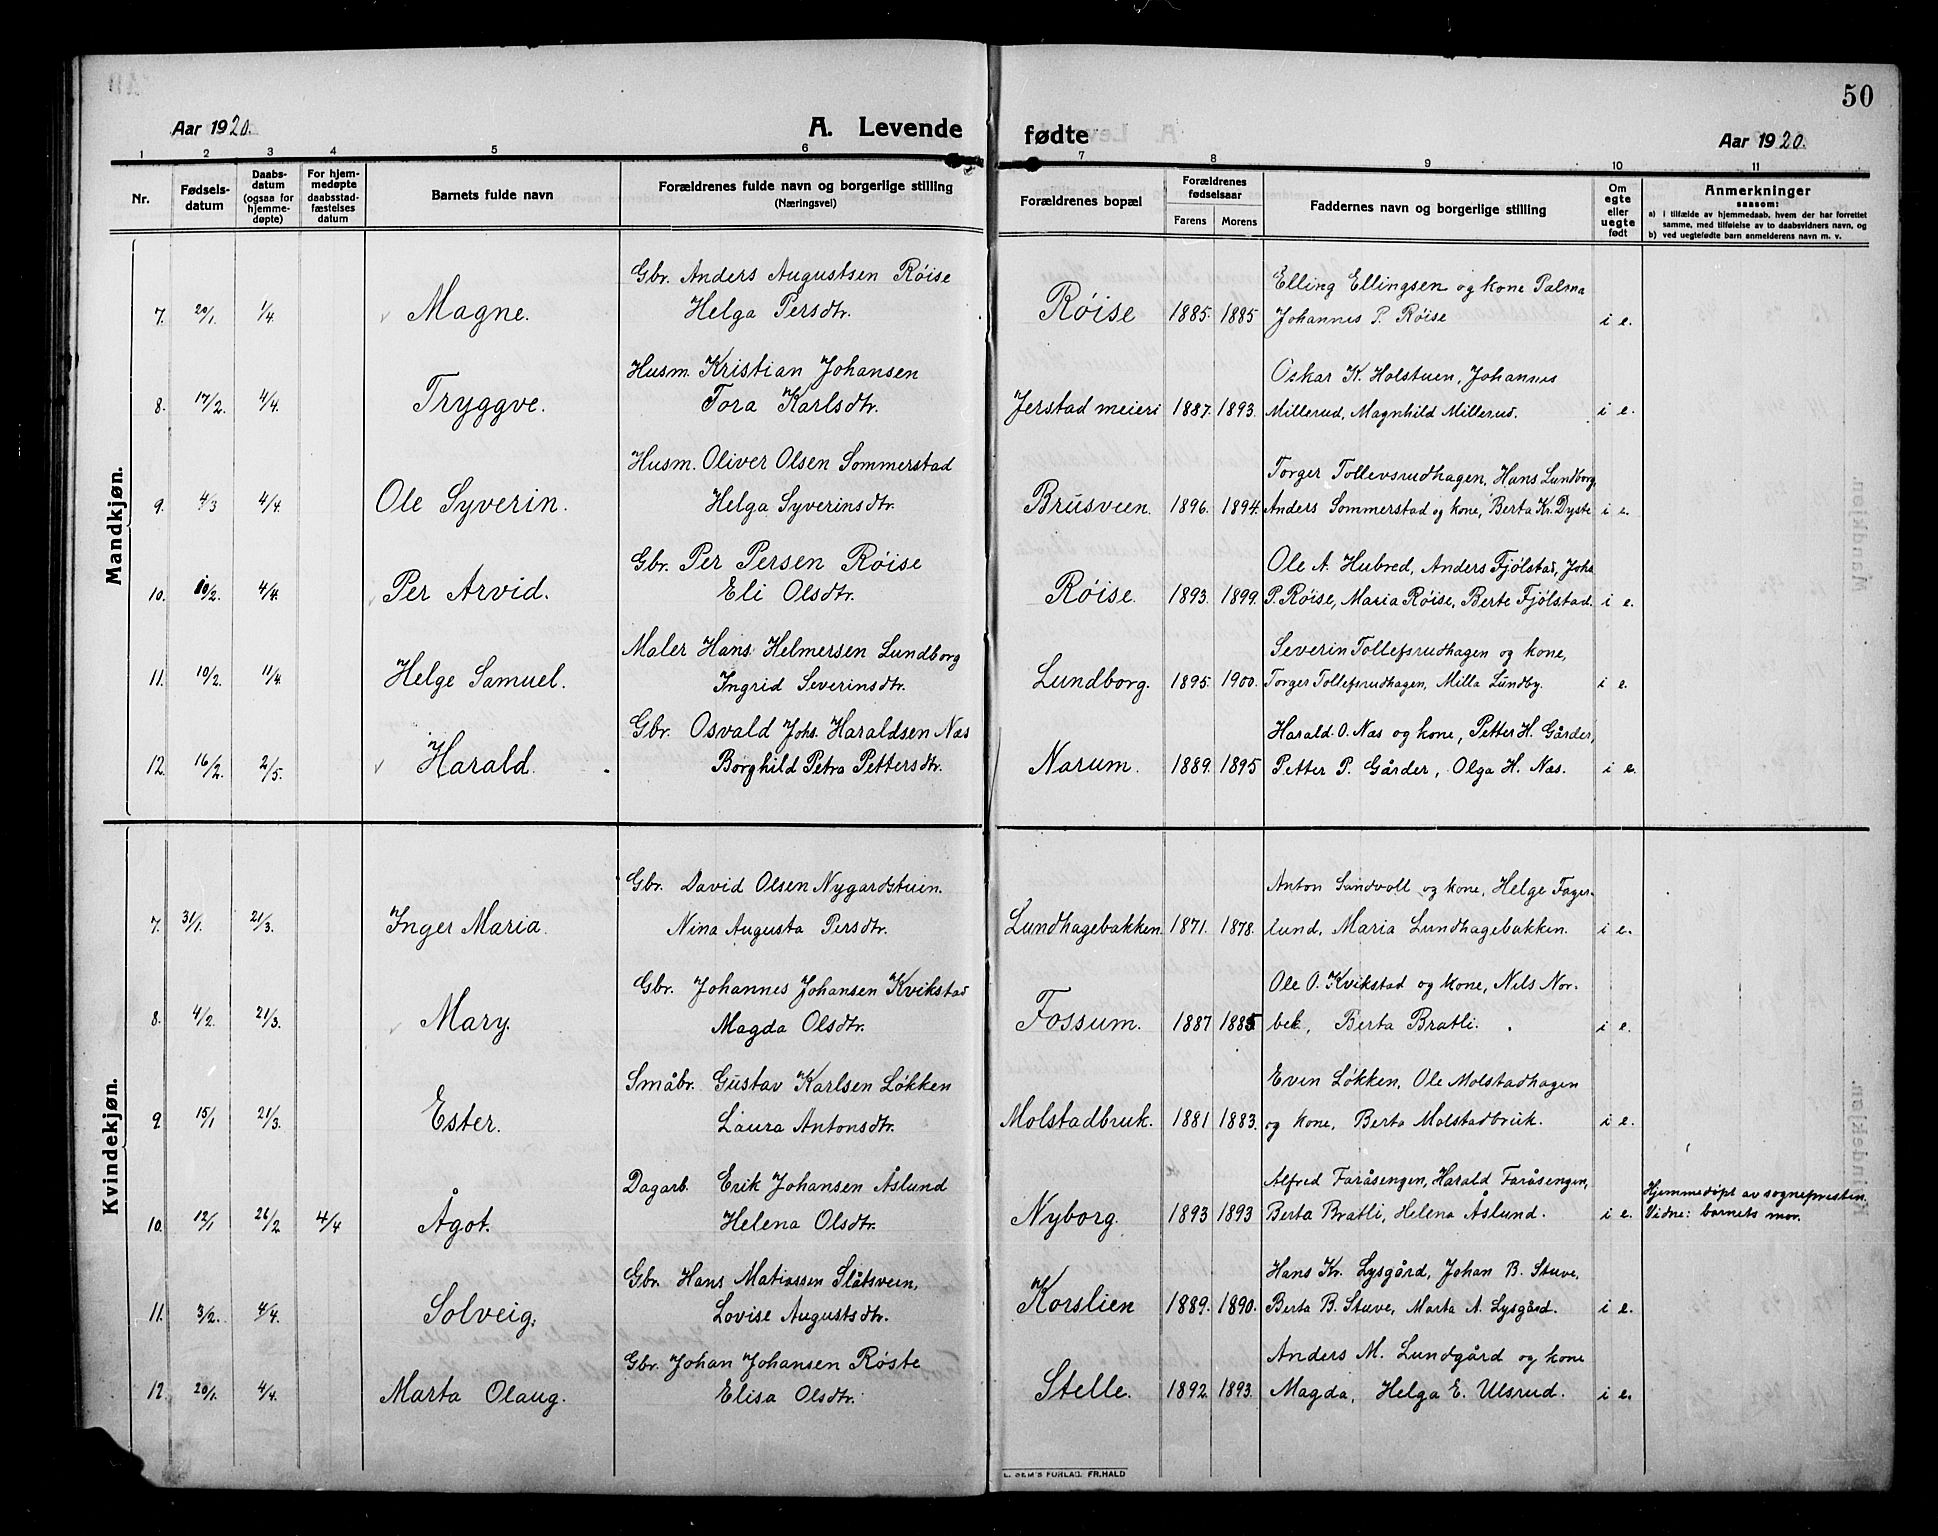 50
Aar 1920.
A. Levende fødte
Aar 1920.
1 2 3 4 5 6 7 8 9 10 11
Nr.
Fødsels-
datum
Daabs-
datum
(ogsaa for
hjemme-
døpte)
For hjem-
medøpte
daabsstad-
fæstelses
datum
Barnets fulde navn
Forældrenes fulde navn og borgerlige stilling
(Næringsvei)
Forældrenes bopæl
Forældrenes
fødselsaar
Farens Morens
Faddernes navn og borgerlige stilling
Om
egte
eller
uegte
født
Anmerkninger
saasom:
a) i tilfælde av hjemmedaab, hvem der har forrettet
samme, med tilføielse av to daabsvidners navn, og
b) ved uegtefødte barn anmelderens navn m. v.
Mandkjøn.
Gbr. Anders Augustsen Røise Elling Ellingsen og kone Palma
7. 20/1. 1/4. Magne. Helga Persdtr. Røise 1885. 1885 Johannes P. Røise i e.
Husm. Kristian Johansen Oskar K. Holstuen, Johannes
8. 17/2. 4/4. Tryggve. Tora Karlsdtr. Jerstad meieri 1887. 1893. Millerud, Magnhild Millerud. i e.
Husm. Oliver Olsen Sommerstad Torger Tollevsrudhagen, Hans Lundborg
9. 4/3 4/4. Ole Syverin. Helga Syverinsdtr. Brusveen. 1896. 1894. Anders Sommerstad og kone, Berta Kr. Dyste i e.
Gbr. Per Persen Røise Ole A. Hubred, Anders Fjølstad, Joha
10. 10/2. 4/4. Per Arvid. Eli Olsdtr. Røise. 1893. 1899. P. Røise, Maria Røise, Berte Fjølstad. i e.
Maler Hans Helmersen Lundborg Severin Tollefsrudhagen og kone,
11. 10/2. 11/4. Helge Samuel. Ingrid Severinsdtr. Lundborg. 1895. 1900. Torger Tollefsrudhagen, Milla Lundby. i e.
Gbr. Osvald Johs. Haraldsen Næs Harald O. Næs og kone, Petter H. Gårder,
12. 16/2. 2/5. Harald. Borghild Petra Pettersdtr. Narum. 1889. 1895 Petter P. Gårder, Olga H. Næs. i e.
Kvindekjøn.
Gbr. David Olsen Nygardstuen. Anton Sandvoll og kone, Helge Fager-
7. 31/1. 21/3. Inger Maria. Nina Augusta Persdtr. Lundhagebakken. 1871. 1878. lund, Maria Lundhagebakken. i e.
Gbr. Johannes Johansen Kvikstad Ole O. Kvikstad og kone, Nils Nor-
8. 4/2. 21/3. Mary. Magda Olsdtr. Fossum. 1887 1885 bek, Berta Bratli. i e.
Småbr. Gustav Karlsen Løkken Even Løkken, Ole Molstadhagen
9 15/1 21/3. Ester. Laura Antonsdtr. Molstadbruk. 1881 1883. og kone, Berta Molstadbruk. i e.
Dagarb. Erik Johansen Åslund Alfred Faråsengen, Harald Faråsengen, Hjemmedøpt av sognepresten.
10. 12/1 26/2 4/4 Ågot. Helena Olsdtr. Nyborg. 1893 1893 Berta Bratli, Helena Åslund. i e. Vidne: barnets mor.
Gbr. Hans Matiassen Slåtsveen, Hans Kr. Lysgård, Johan B. Stuve,
11. 3/2. 4/4. Solveig. Lovise Augustsdtr. Korslien 1889. 1890. Berta B. Stuve, Marta A. Lysgård. i e.
Gbr. Johan Johansen Røste Anders M. Lundgård og kone
12. 20/1. 4/4. Marta Olaug. Elisa Olsdtr. Stelle. 1892. 1893. Magda, Helga E. Ulsrud. i e.
E. SEM'S FORLAG. FR.HALD